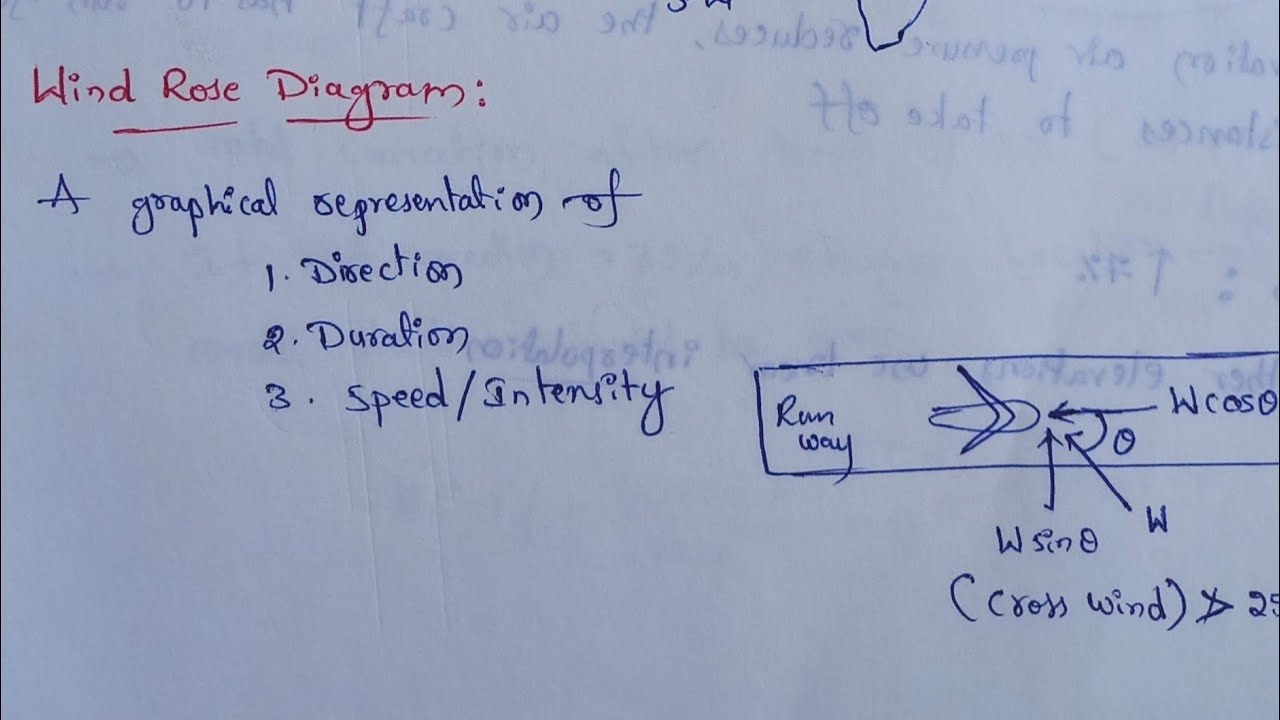 Wind Rose Diagram:
A graphical representation of
1. Direction
2. Duration
3. Speed/Intensity
Run
way
W cosθ
θ
W
W sinθ
(Cross wind) ≯ 25